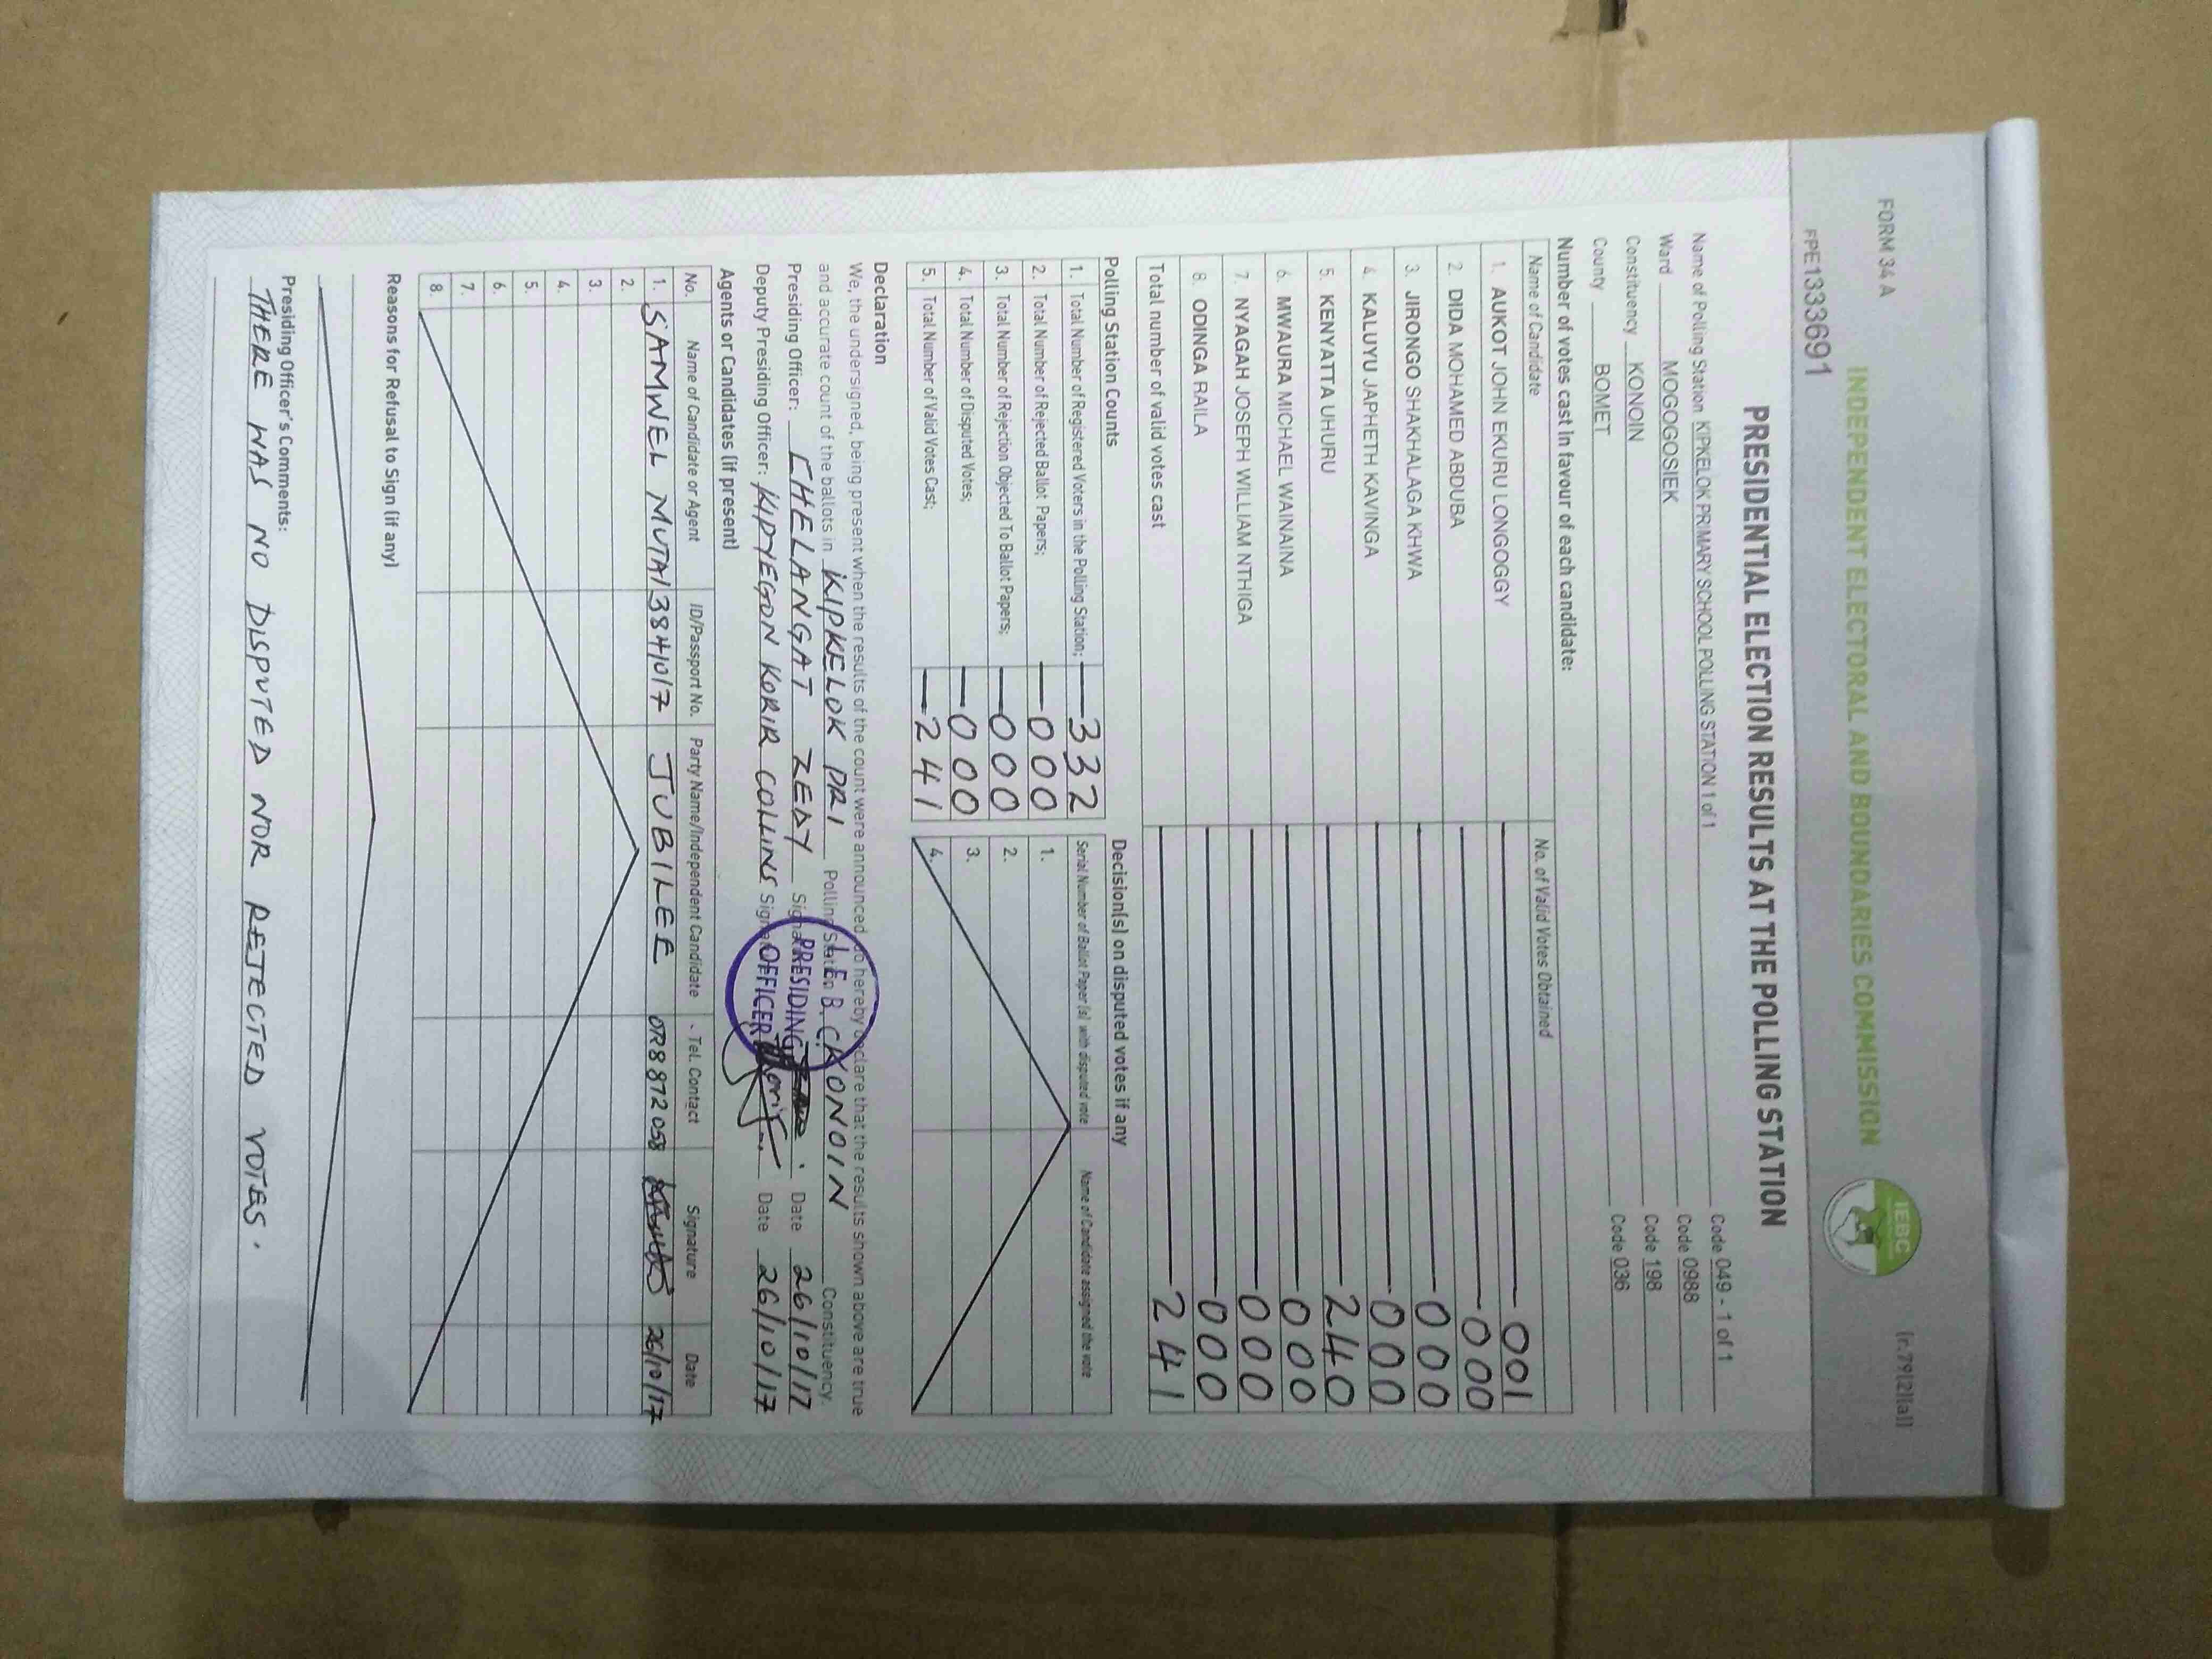 FORM 34 A
(r.79(2)(a))
INDEPENDENT ELECTORAL AND BOUNDARIES COMMISSION
IEBC
FPE1333691
PRESIDENTIAL ELECTION RESULTS AT THE POLLING STATION
Name of Polling Station KIPKELOK PRIMARY SCHOOL POLLING STATION 1 of 1 Code 049 - 1 of 1
Ward MOGOGOSIEK Code 0988
Constituency KONOIN Code 198
County BOMET Code 036
Number of votes cast in favour of each candidate:
Name of Candidate No. of Valid Votes Obtained
1. AUKOT JOHN EKURU LONGOGGY 001
2. DIDA MOHAMED ABDUBA 000
3. JIRONGO SHAKHALAGA KHWA 000
4. KALUYU JAPHETH KAVINGA 000
5. KENYATTA UHURU 240
6. MWAURA MICHAEL WAINAINA 000
7. NYAGAH JOSEPH WILLIAM NTHIGA 000
8. ODINGA RAILA 000
Total number of valid votes cast 241
Polling Station Counts
1. Total Number of Registered Voters in the Polling Station; 332
2. Total Number of Rejected Ballot Papers; 000
3. Total Number of Rejection Objected To Ballot Papers; 000
4. Total Number of Disputed Votes; 000
5. Total Number of Valid Votes Cast; 241
Decision(s) on disputed votes if any
Serial Number of Ballot Paper (s) with disputed vote Name of Candidate assigned the vote
1.
2.
3.
4.
Declaration
We, the undersigned, being present when the results of the count were announced do hereby declare that the results shown above are true
and accurate count of the ballots in KIPKELOK PRI Polling Station KONOIN Constituency.
Presiding Officer: CHELANGAT ZEDY Date 26/10/17
Deputy Presiding Officer: KIPYEGON KORIR COLLINS Date 26/10/17
I.E.B.C.
PRESIDING
OFFICER
Agents or Candidates (if present)
No. Name of Candidate or Agent ID/Passport No. Party Name/Independent Candidate Tel. Contact Signature Date
1. SAMWEL MUTAI 13841017 JUBILEE 0728872058 26/10/17
2.
3.
4.
5.
6.
7.
8.
Reasons for Refusal to Sign (if any)
Presiding Officer's Comments:
THERE WAS NO DISPUTED NOR REJECTED VOTES.